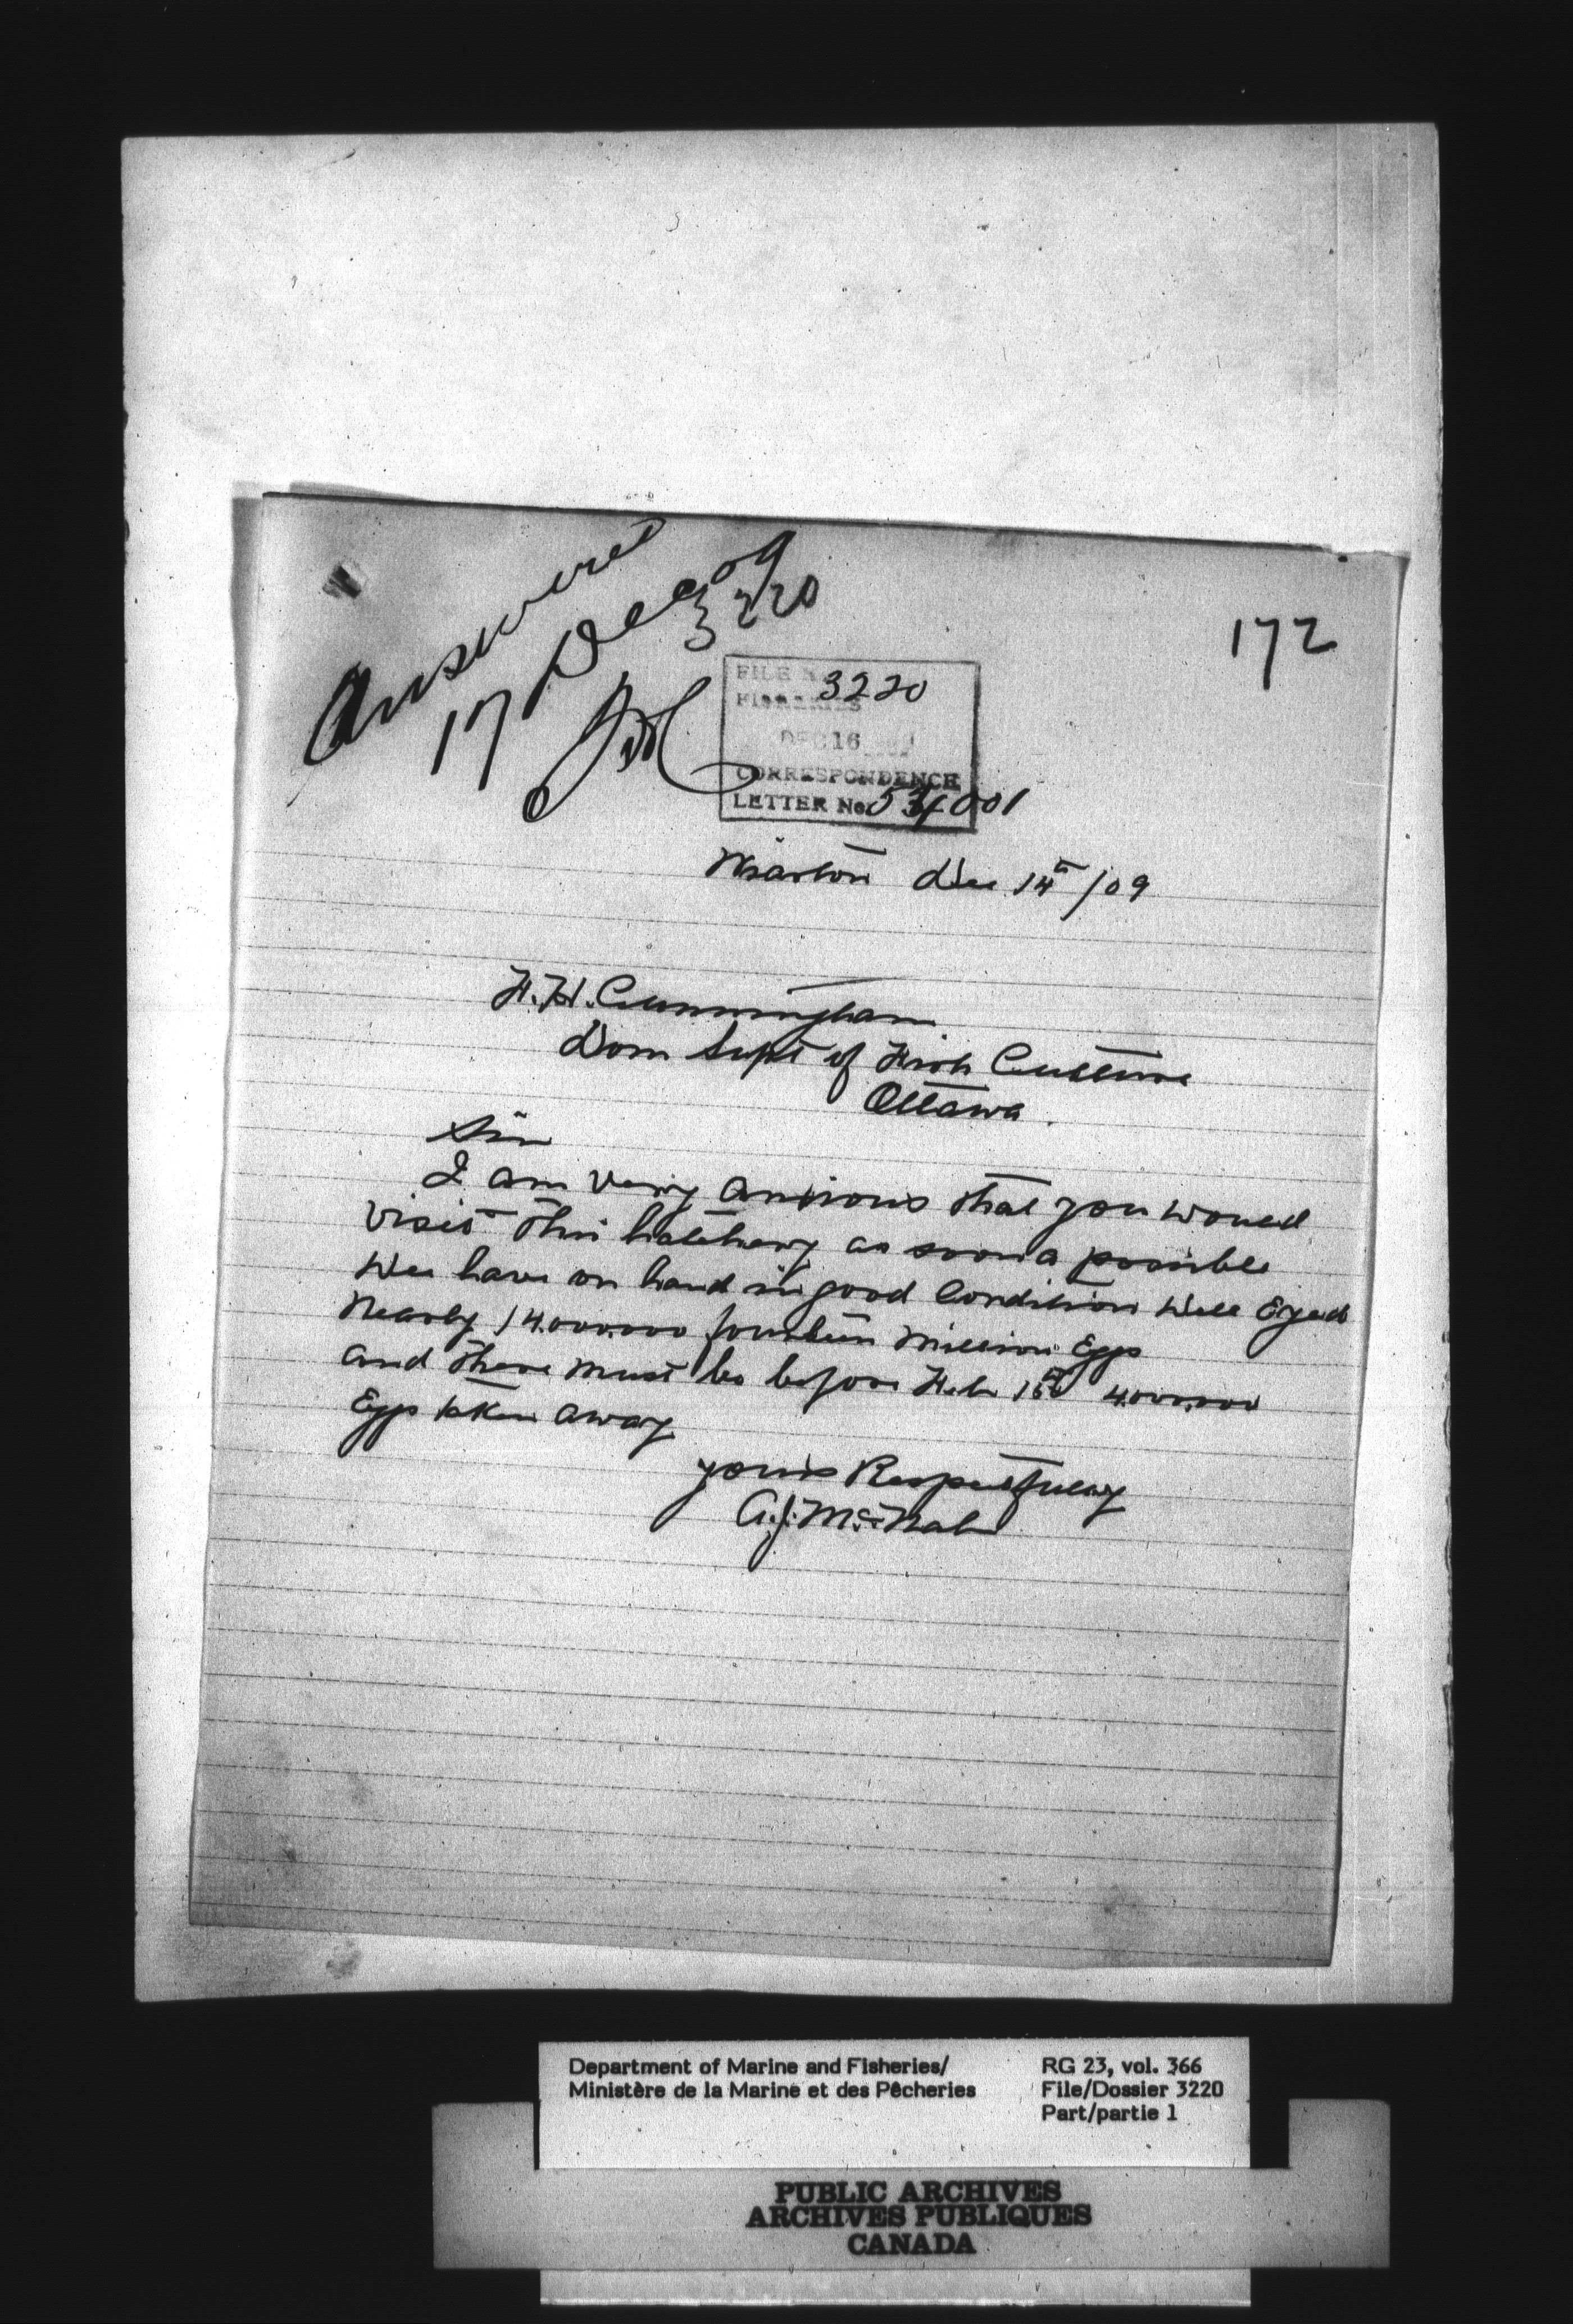 Answered
17 Dec 09
3220
172
FILE No 3220
FISHERIES
DEC 16
CORRESPONDENCE
LETTER No. 534001
Wiarton Dec 14th/09
F.H. Cunningham
Dom Supt of Fish Culture
Ottawa.
Sir
I am very anxious that you would
visit this hatchery as soon a possible
We have on hand in good Condition Well Eyed
Nearly 14.000.000 fourteen Million Eggs
and there must be before Feb 1st 4.000.000
Eggs taken away
yours Respectfully
A.J. McNab
Department of Marine and Fisheries/
Ministère de la Marine et des Pêcheries
RG 23, vol. 366
File/Dossier 3220
Part/partie 1
PUBLIC ARCHIVES
ARCHIVES PUBLIQUES
CANADA